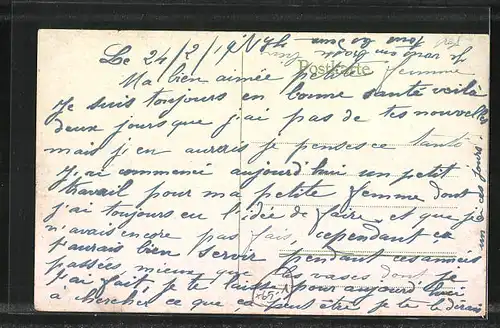 Le 24/2/19
Postkarte
Ma bien aimée petite femme
Je suis toujours en bonne santé voilà
deux jours que j'ai pas de tes nouvelles
mais j'en aurais je pense ce
J'ai commencé aujourd'hui un petit
travail pour ma petite femme dont
j'ai toujours eu l'idée de faire et que je
n'avais encore pas fais, cependant ça
t'aurais bien servir pendant ces années
passées mieux que les vases dont je
t'ai fait, je te laisse pour aujourd'hui
à chercher ce que ça peut être je te le dirais
un de ces jours